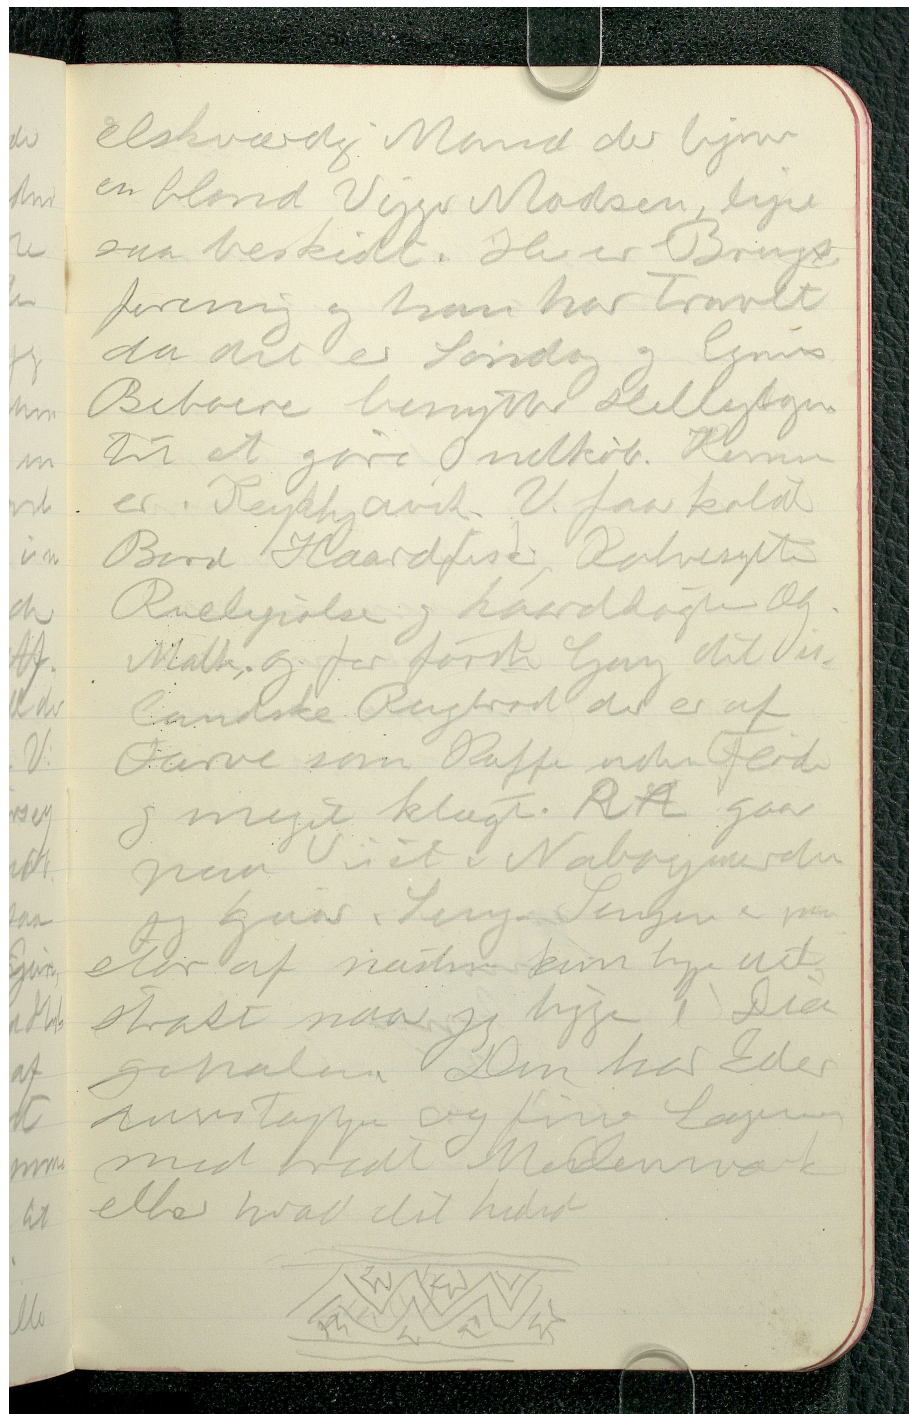 elskværdig Mand der ligner
en blond Viggo Madsen, lige
saa beskidt. Her er Brugs
forening og han har Travlt
da det er Søndag og Egnens
Beboere benytter Helligdagen
til at gøre Indkøb. Konen
er i Reykjavik. Vi faar koldt
Bord Haardfisk, Kalvesylte
Rullepølse og haardkogte Æg.
Mælk, og for første Gang det is-
landske Rugbrød der er af
Farve som Kaffe uden Fløde
og meget klægt. RA gaar
paa Visit i Nabogaarden
jeg gaar i Seng. Sengen er
elev af næsten kun ligge udt
strakt naar jeg ligger i Dia
gonalen. Den har Eder
dunstæppe og fine Lagener
med bredt Mellemværk
eller hvad det hedder